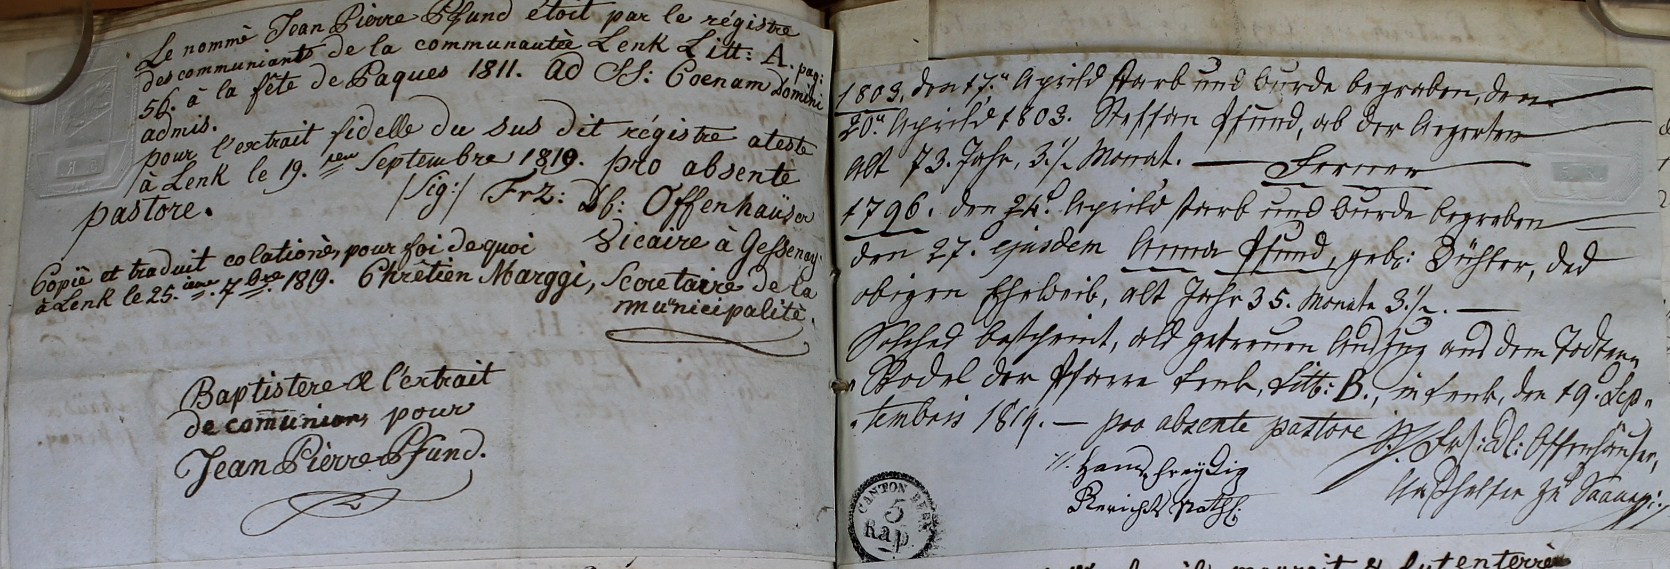 Le nommè Jean Pierre Pfund ètoit par le règistre
des communiants de la communautèe Lenk Litt: A. pag:
56. à la fête de Paques 1811. ad SS: Coenam Domini
admis.
pour l'extrait fidelle du sus dit règistre ateste
à Lenk le 19. Septembre 1819. pro absentè
pastore. /sig:/ Frz: Offenhaüser
Vicaire à Gessenay.
Copiè et traduit colationè, pour foi de quoi
à Lenk le 25.ieme. 7bre. 1819. Chrètien Marggi, Secretaire de la
municipalitè.
Baptistere & l'extrait
de comunion, pour
Jean Pierre Pfund.
1803. den 17.n Aprils starb und wurde begraben, den
20.n Aprils 1803. Steffan Pfund, ab der Aegerten
alt 73. Jahr, 3.½ Monat. — Ferner
1796. den 24. Aprils starb und wurde begraben
den 27. ejusdem Anna Pfund, geb: Bühler, des
obigen Eheweib, alt Jahr 35. Monate 3.½. —
Solches bescheint, als getreuen Auszug aus dem Todten
Rodel der Pfarre Lenk, Litt: B., in Lenk, den 19. Sep-
tembris 1819. — pro absente pastore Offenhäuser,
Hans Freydig
Gerichts
CANTON BERN
5
Rap.